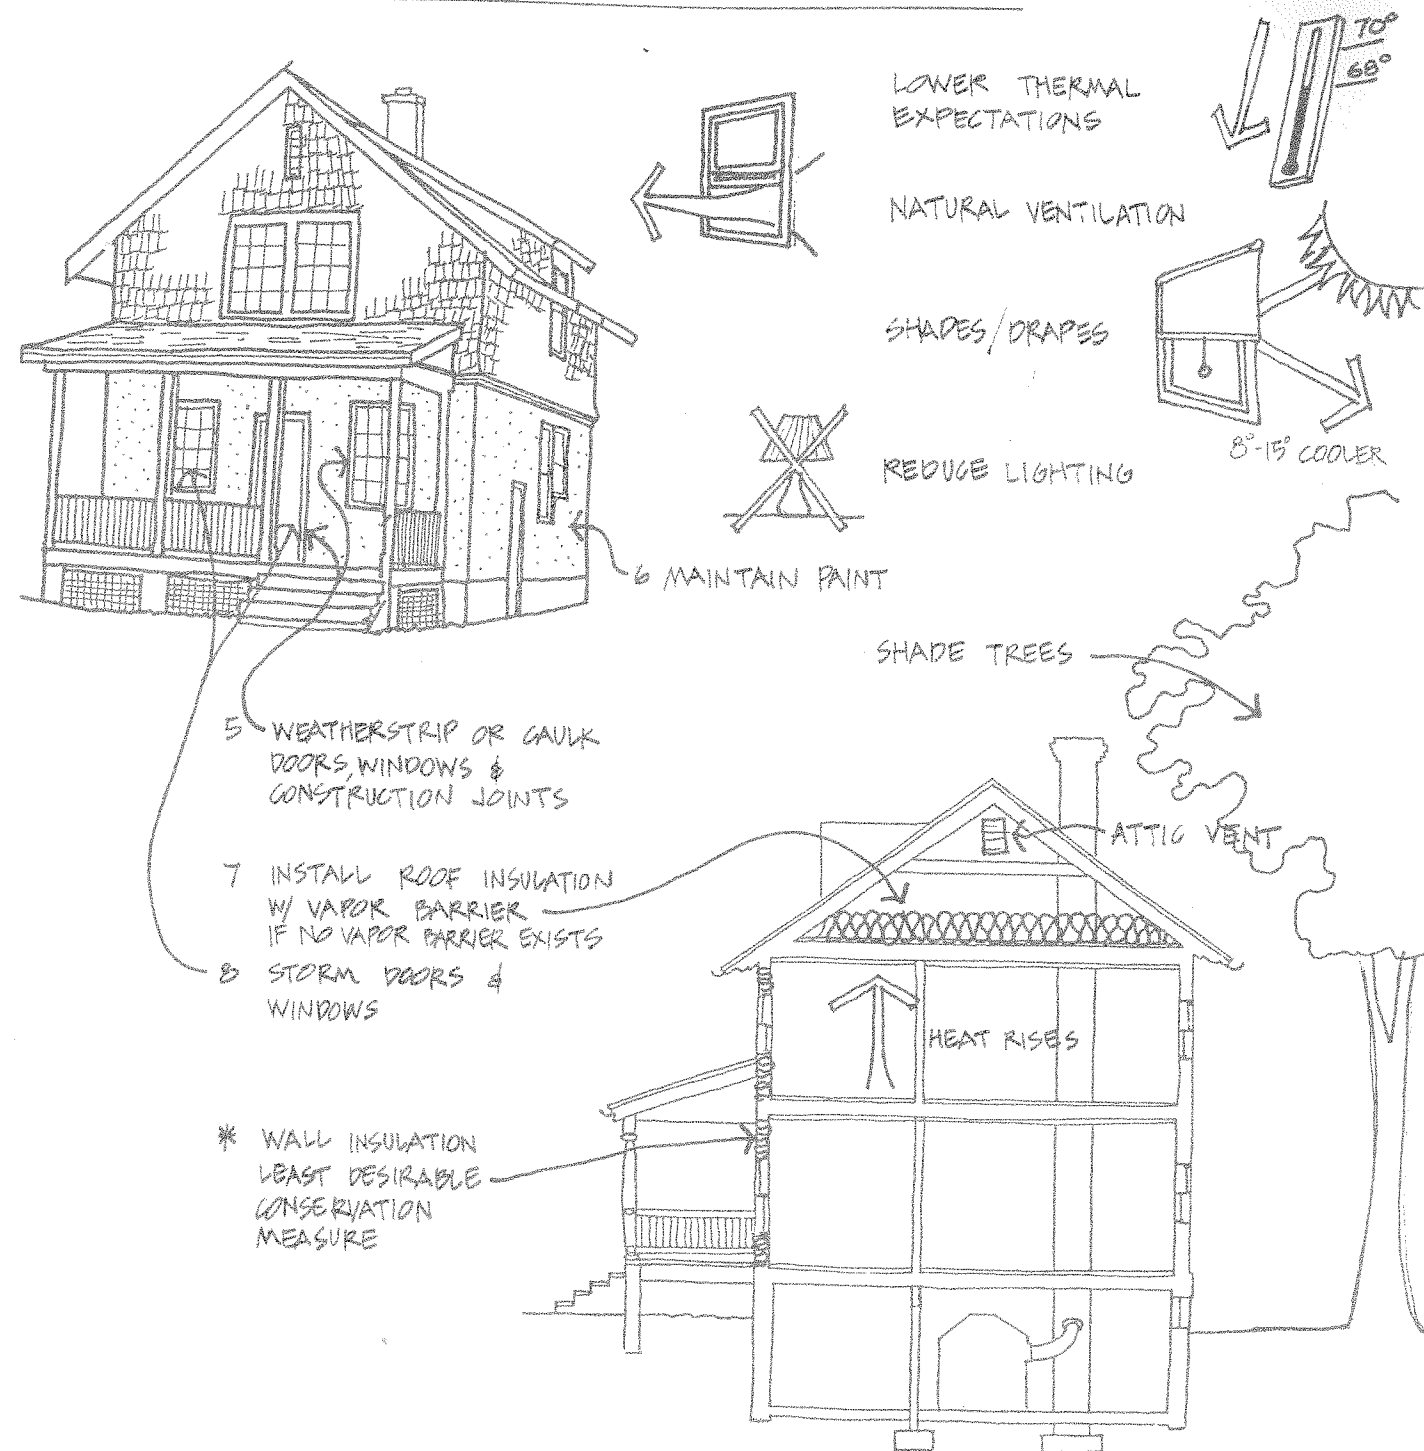 70°
68°
LOWER THERMAL
EXPECTATIONS
NATURAL VENTILATION
SHADES/DRAPES
8°-15° COOLER
REDUCE LIGHTING
6 MAINTAIN PAINT
SHADE TREES
5 WEATHERSTRIP OR CAULK
DOORS, WINDOWS &
CONSTRUCTION JOINTS
ATTIC VENT
7 INSTALL ROOF INSULATION
W/ VAPOR BARRIER
IF NO VAPOR BARRIER EXISTS
8 STORM DOORS &
WINDOWS
HEAT RISES
* WALL INSULATION
LEAST DESIRABLE
CONSERVATION
MEASURE